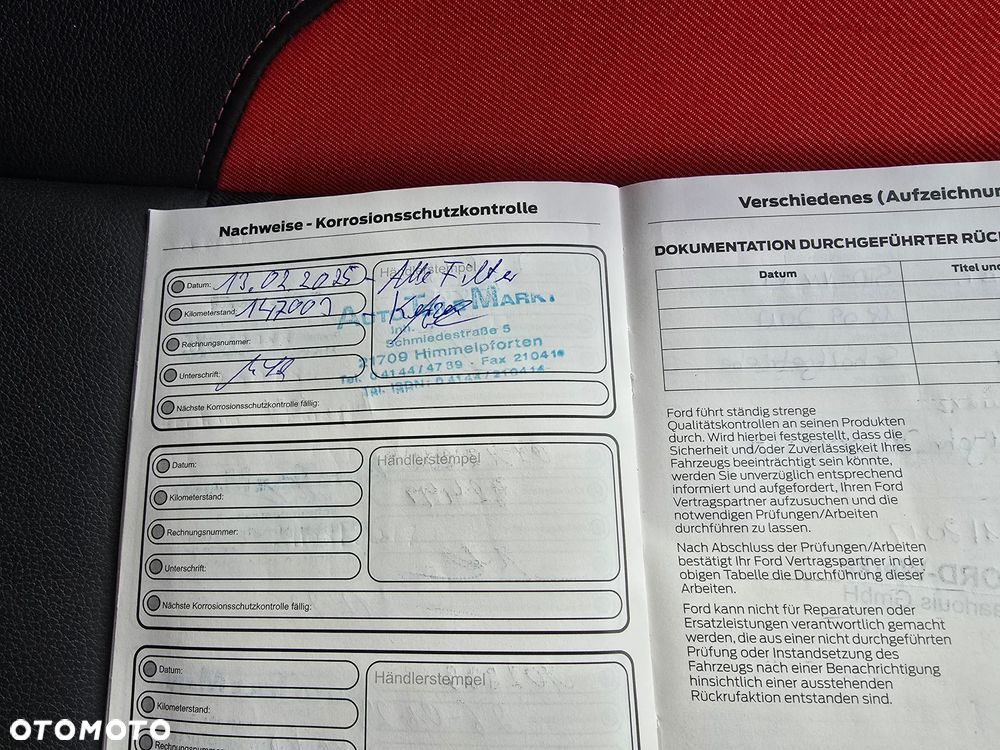 Nachweise - Korrosionsschutzkontrolle
Datum: 13.02.2025
Kilometerstand: 147003
Rechnungsnummer:
Unterschrift:
Nächste Korrosionsschutzkontrolle fällig:
Händlerstempel
Alle Filter
Markt
Inh.
Schmiedestraße 5
21709 Himmelpforten
Tel. 04144/4789 - Fax 210416
Tel. ISDN: 04144/210414
Datum:
Kilometerstand:
Rechnungsnummer:
Unterschrift:
Nächste Korrosionsschutzkontrolle fällig:
Händlerstempel
Datum:
Kilometerstand:
Rechnungsnummer:
Händlerstempel
Verschiedenes (Aufzeichnu
DOKUMENTATION DURCHGEFÜHRTER RÜC
Datum
Titel und
Ford führt ständig strenge
Qualitätskontrollen an seinen Produkten
durch. Wird hierbei festgestellt, dass die
Sicherheit und/oder Zuverlässigkeit Ihres
Fahrzeugs beeinträchtigt sein könnte,
werden Sie unverzüglich entsprechend
informiert und aufgefordert, Ihren Ford
Vertragspartner aufzusuchen und die
notwendigen Prüfungen/Arbeiten
durchführen zu lassen.
Nach Abschluss der Prüfungen/Arbeiten
bestätigt Ihr Ford Vertragspartner in der
obigen Tabelle die Durchführung dieser
Arbeiten.
Ford kann nicht für Reparaturen oder
Ersatzleistungen verantwortlich gemacht
werden, die aus einer nicht durchgeführten
Prüfung oder Instandsetzung des
Fahrzeugs nach einer Benachrichtigung
hinsichtlich einer ausstehenden
Rückrufaktion entstanden sind.
OTOMOTO